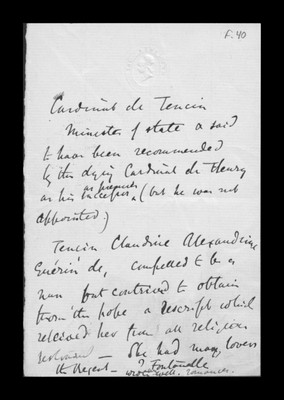 F. 40
Cardinal de Tencin
Minister of state a said
to have been recommended
by the dying Cardinal de Fleury
as proper
as his successor (but he was not
appointed.)
Tencin Claudine Alexandrine
Guérin de, compelled to be a
nun but contrived to obtain
from the pope a rescript which
released her from all religious
She had many lovers
the Regent — Fontenelle
wrote well. romances.